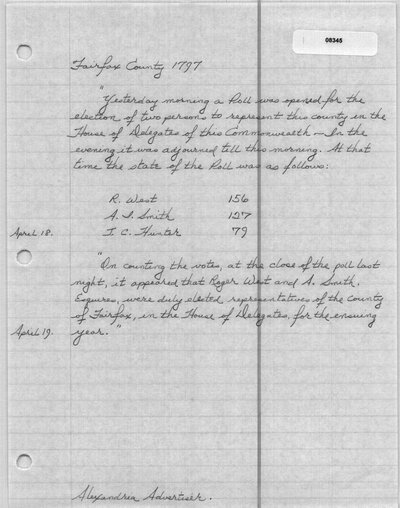 08345
Fairfax County 1797
"Yesterday morning a Poll was opened for the
election of two persons to represent this county in the
House of Delegates of this Commonwealth — In the
evening it was adjourned till this morning. At that
time the state of the Poll was as follows:
R. West 156
A. S. Smith 127
April 18. J. C. Hunter 79
"On counting the votes, at the close of the poll last
night, it appeared that Roger West and A. Smith.
Esquires, were duly elected representatives of the county
of Fairfax, in the House of Delegates, for the ensuing
April 19. year."
Alexandria Advertiser.